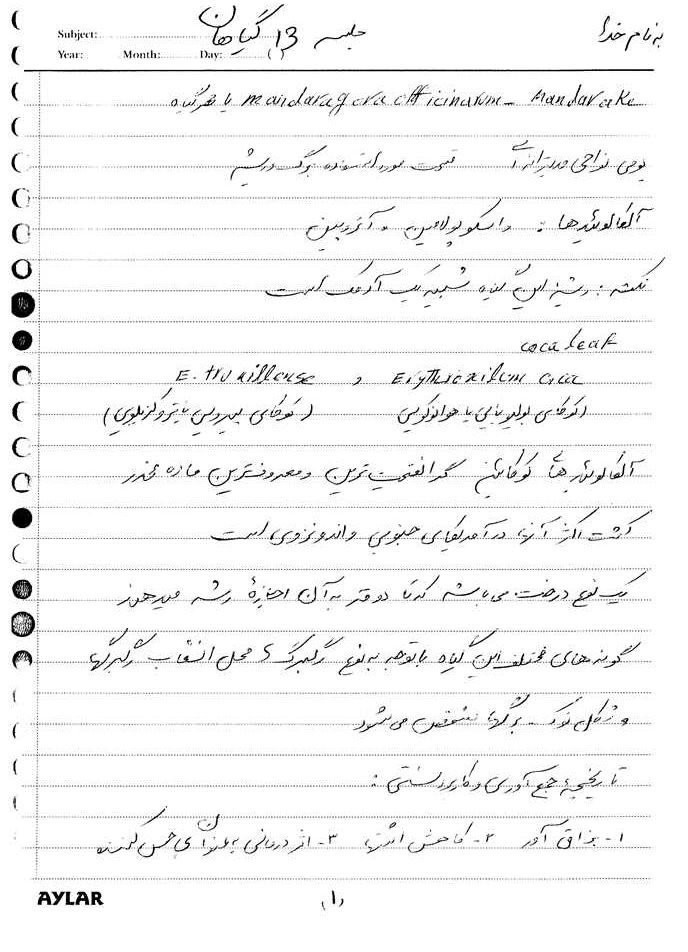 به نام خدا
جلسه 13 گیاهان
Subject:
Year: Month: Day: ( )
mandaragora officinarum - Mandarake یا مهرگیاه
بومی نواحی مدیترانه ای قسمت مورد استفاده برگ و ریشه
آلکالوئیدها : اسکوپولامین و آتروپین
نکته : ریشه این گیاه شبیه یک آدمک است
coca leaf
Erythroxilum coca و E. truxillense
(کوکای بولیویایی یا هوانوکویی) (کوکای پرویی یا تروکزیلویی)
آلکالوئیدها کوکائین گرانقیمت ترین و معروفترین ماده مخدر
کشت اکثر آنها در آمریکای جنوبی و اندونزی است
یک نوع درخت می باشد که تا دو متر به آن اجازۀ رشد میدهند
گونه های مختلف این گیاه با توجه به نوع گلبرگ و محل انشعاب گلبرگها
و شکل نوک برگها مشخص می شود
تاریخچه جمع آوری و کاربرد سنتی :
۱- بزاق آور ۲- کاهش اشتها ۳- اثر درمانی به عنوان بی حس کننده
AYLAR
(۱)